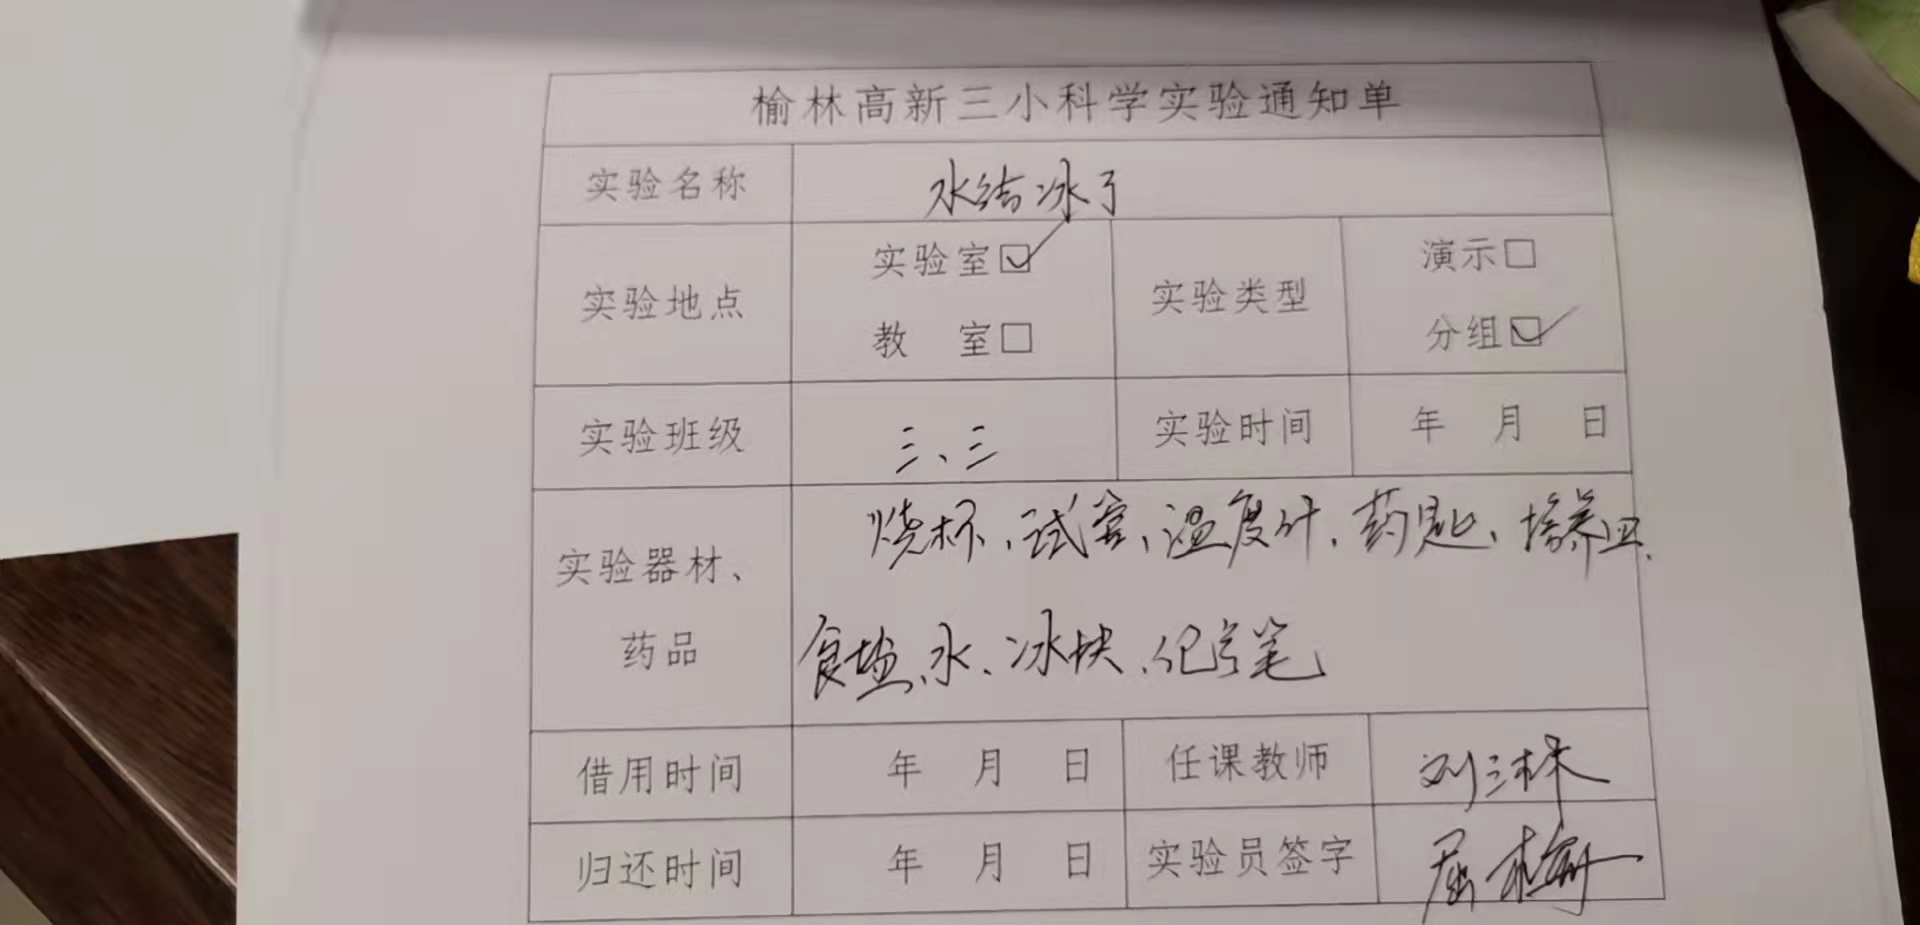 榆林高新三小科学实验通知单
实验名称 水结冰了
实验地点 实验室☑ 教 室□ 实验类型 演示□ 分组☑
实验班级 三、三 实验时间 年 月 日
实验器材、药品 烧杯、试管、温度计、药匙、培养皿、
食盐、水、冰块、记号笔
借用时间 年 月 日 任课教师 刘三林
归还时间 年 月 日 实验员签字 屈